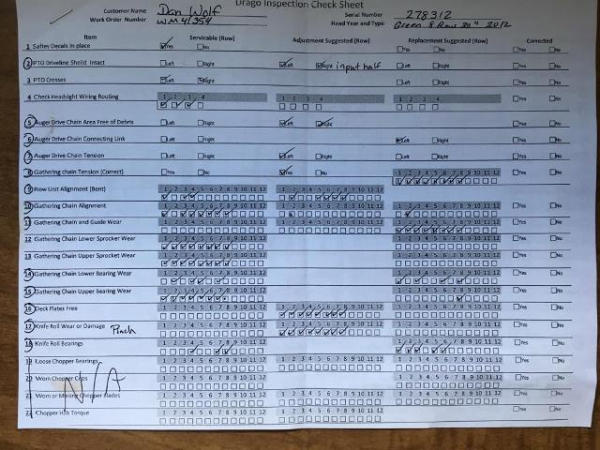 Drago Inspection Check Sheet
Customer Name Dan Wolf Serial Number 278312
Work Order Number WM41354 Head Year and Type Green 8 Row 30" 2012
Item Serviceable (Row) Adjustment Suggested (Row) Replacement Suggested (Row) Corrected
1 Saftey Decals in place Yes No Yes No Yes No
2 PTO Driveline Shield Intact Left Right Left Right input half Left Right Yes No
3 PTO Greases Left Right Left Right Yes No
4 Check Headsight Wiring Routing 1 2 3 4 1 2 3 4 1 2 3 4 Yes No
5 Auger Drive Chain Area Free of Debris Left Right Left Right Yes No
6 Auger Drive Chain Connecting Link Left Right Left Right Yes No
7 Auger Drive Chain Tension Left Right Left Right Yes No
8 Gathering chain Tension (Correct) Yes No Left Right 1 2 3 4 5 6 7 8 9 10 11 12 Yes No
9 Row Unit Alignment (Bent) 1 2 3 4 5 6 7 8 9 10 11 12 1 2 3 4 5 6 7 8 9 10 11 12 1 2 3 4 5 6 7 8 9 10 11 12 Yes No
10 Gathering Chain Alignment 1 2 3 4 5 6 7 8 9 10 11 12 1 2 3 4 5 6 7 8 9 10 11 12 1 2 3 4 5 6 7 8 9 10 11 12 Yes No
11 Gathering Chain and Guide Wear 1 2 3 4 5 6 7 8 9 10 11 12 1 2 3 4 5 6 7 8 9 10 11 12 Yes No
12 Gathering Chain Lower Sprocket Wear 1 2 3 4 5 6 7 8 9 10 11 12 1 2 3 4 5 6 7 8 9 10 11 12 Yes No
13 Gathering Chain Upper Sprocket Wear 1 2 3 4 5 6 7 8 9 10 11 12 1 2 3 4 5 6 7 8 9 10 11 12 Yes No
14 Gathering Chain Lower Bearing Wear 1 2 3 4 5 6 7 8 9 10 11 12 1 2 3 4 5 6 7 8 9 10 11 12 Yes No
15 Gathering Chain Upper Bearing Wear 1 2 3 4 5 6 7 8 9 10 11 12 1 2 3 4 5 6 7 8 9 10 11 12 Yes No
16 Deck Plates Free 1 2 3 4 5 6 7 8 9 10 11 12 1 2 3 4 5 6 7 8 9 10 11 12 1 2 3 4 5 6 7 8 9 10 11 12 Yes No
17 Knife Roll Wear or Damage Pinch 1 2 3 4 5 6 7 8 9 10 11 12 1 2 3 4 5 6 7 8 9 10 11 12 1 2 3 4 5 6 7 8 9 10 11 12 Yes No
18 Knife Roll Bearings 1 2 3 4 5 6 7 8 9 10 11 12 1 2 3 4 5 6 7 8 9 10 11 12 Yes No
19 Loose Chopper Bearings 1 2 3 4 5 6 7 8 9 10 11 12 1 2 3 4 5 6 7 8 9 10 11 12 1 2 3 4 5 6 7 8 9 10 11 12 Yes No
20 Worn Chopper Cups 1 2 3 4 5 6 7 8 9 10 11 12 1 2 3 4 5 6 7 8 9 10 11 12 Yes No
N/A
21 Worn or Missing Chopper Blades 1 2 3 4 5 6 7 8 9 10 11 12 1 2 3 4 5 6 7 8 9 10 11 12 1 2 3 4 5 6 7 8 9 10 11 12 Yes No
22 Chopper Hub Torque 1 2 3 4 5 6 7 8 9 10 11 12 1 2 3 4 5 6 7 8 9 10 11 12 1 2 3 4 5 6 7 8 9 10 11 12 Yes No